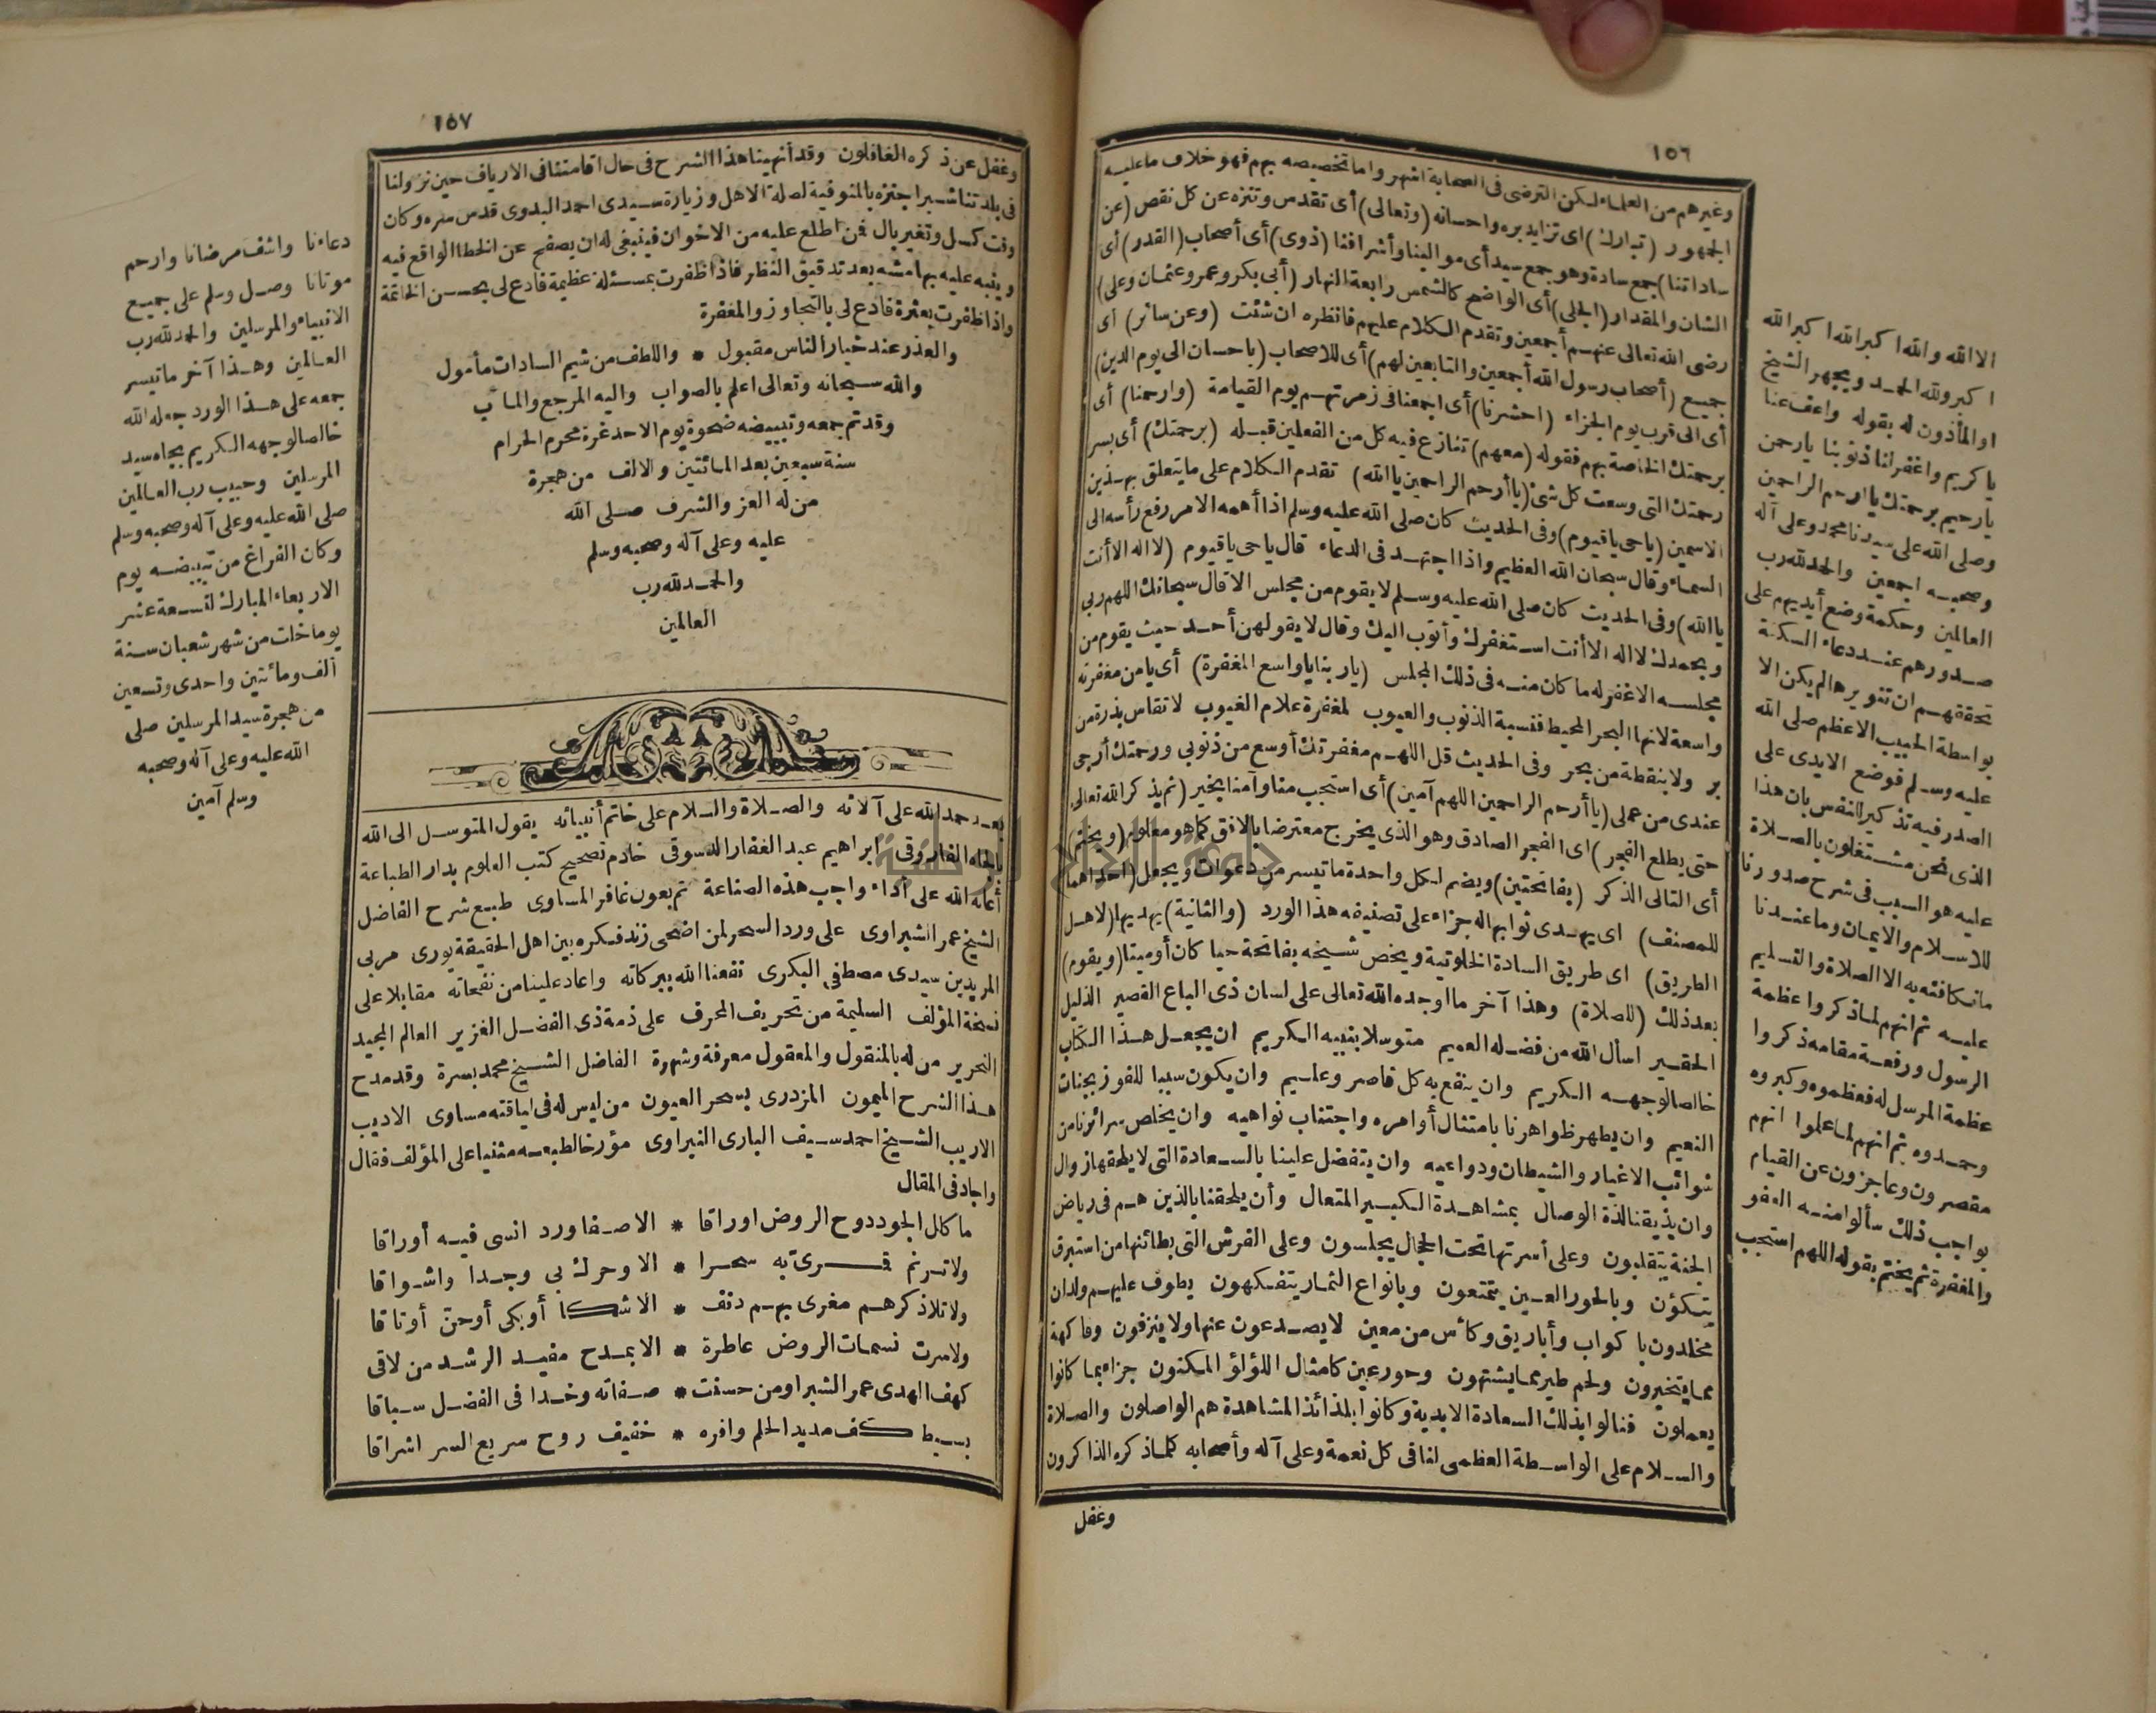 ١٥٦
وغيرهم من العلماء لكن الترضى فى الصحابة اشهر واما تخصيصه بهم فهو خلاف ما عليه
الجمهور (تبارك) اى تزايد بره واحسانه (وتعالى) أى تقدس وتنزه عن كل نقص (عن
ساداتنا) جمع سادة وهو جمع سيد أى موالينا وأشرافنا (ذوى) أى أصحاب (القدر) أى
الشان والمقدار (الجلى) أى الواضح كالشمس رابعة النهار (أبى بكر وعمر وعثمان وعلى)
رضى الله تعالى عنهم أجمعين وتقدم الكلام عليهم فانظره ان شئت (وعن سائر) أى
جميع (أصحاب رسول الله أجمعين والتابعين لهم) أى للاصحاب (باحسان الى يوم الدين)
أى الى قرب يوم الجزاء (احشرنا) أى اجمعنا فى زمرتهم يوم القيامة (وارحمنا) أى
برحمتك الخاصة بهم فقوله (معهم) تنازع فيه كل من الفعلين قبله (برحمتك) أى بسر
رحمتك التى وسعت كل شئ (يا أرحم الراحمين يا الله) تقدم الكلام على ما يتعلق بهذين
الاسمين (يا حى يا قيوم) وفى الحديث كان صلى الله عليه وسلم اذا أهمه الامر رفع رأسه الى
السماء وقال سبحان الله العظيم واذا اجتهد فى الدعاء قال يا حى يا قيوم (لا اله الا أنت
يا الله) وفى الحديث كان صلى الله عليه وسلم لا يقوم من مجلس الا قال سبحانك اللهم ربى
وبحمدك لا اله الا أنت استغفرك وأتوب اليك وقال لا يقولهن أحد حيث يقوم من
مجلسه الا غفر له ما كان منه فى ذلك المجلس (يا ربنا يا واسع المغفرة) أى يا من مغفرته
واسعة لانها البحر المحيط فنسبة الذنوب والعيوب لمغفرة علام الغيوب لا تقاس بذرة من
بر ولا بنقطة من بحر وفى الحديث قل اللهم مغفرتك أوسع من ذنوبى ورحمتك أرجى
عندى من عملى (يا أرحم الراحمين اللهم آمين) أى استجب منا وآمنا بخير (ثم يذكر الله تعالى
حتى يطلع الفجر) اى الفجر الصادق وهو الذى يخرج معترضا بالافق كما هو معلوم (ويختم)
أى التالى الذكر (بفاتحتين) ويضم لكل واحدة ما تيسر من دعوات ويجعل (احداهما
للمصنف) اى يهدى ثوابها له جزاء على تصنيفه هذا الورد (والثانية) يهديها (لاهل
الطريق) اى طريق السادة الخلوتية ويخص شيخه بفاتحة حيا كان أو ميتا (ويقوم)
بعد ذلك (للصلاة) وهذا آخر ما اوجده الله تعالى على لسان ذى الباع القصير الذليل
الحقير اسأل الله من فضله العميم متوسلا بنبيه الكريم ان يجعل هذا الكتاب
خالصا لوجهه الكريم وان ينفع به كل قاصر وعليم وان يكون سببا للفوز بجنات
النعيم وان يطهر ظواهرنا بامتثال أوامره واجتناب نواهيه وان يخلص سرائرنا من
شوائب الاغيار والشيطان ودواعيه وان يتفضل علينا بالسعادة التى لا يلحقها زوال
وان يذيقنا لذة الوصال بمشاهدة الكبير المتعال وأن يلحقنا بالذين هم فى رياض
الجنة يتقلبون وعلى أسرتها تحت الحجال يجلسون وعلى الفرش التى بطائنها من استبرق
يتكؤن وبالحور العين يتمتعون وبانواع الثمار يتفكهون يطوف عليهم ولدان
مخلدون باكواب وأباريق وكأس من معين لا يصدعون عنها ولا ينزفون وفاكهة
مما يتخيرون ولحم طير مما يشتهون وحور عين كامثال اللؤلؤ المكنون جزاء بما كانوا
يعملون فنالوا بذلك السعادة الابدية وكانوا بلذائذ المشاهدة هم الواصلون والصلاة
والسلام على الواسطة العظمى لنا فى كل نعمة وعلى آله وأصحابه كلما ذكره الذاكرون
وغفل
الا الله والله اكبر الله اكبر الله
اكبر ولله الحمد ويجهر الشيخ
او المأذون له بقوله واعف عنا
يا كريم واغفر لنا ذنوبنا يا رحمن
يا رحيم برحمتك يا ارحم الراحمين
وصلى الله على سيدنا محمد وعلى آله
وصحبه اجمعين والحمد لله رب
العالمين وحكمة وضع أيديهم على
صدورهم عند دعاء السكتة
تحققهم ان تنويرها لم يكن الا
بواسطة الحبيب الاعظم صلى الله
عليه وسلم فوضع الايدى على
الصدر فيه تذكير للنفس بان هذا
الذى نحن مشتغلون بالصلاة
عليه هو السبب فى شرح صدورنا
للاسلام والايمان وما عندنا
ما نكافئه به الا الصلاة والتسليم
عليه ثم انهم لما ذكروا عظمة
الرسول ورفعة مقامه ذكروا
عظمة المرسل له فعظموه وكبروه
وحمدوه ثم انهم لما علموا انهم
مقصرون وعاجزون عن القيام
بواجب ذلك سألوا منه العفو
والمغفرة ثم يختم بقوله اللهم استجب
١٥٧
وغفل عن ذكره الغافلون وقد أنهينا هذا الشرح فى حال اقامتنا فى الارياف حين نزولنا
فى بلدتنا شبرا جتره بالمنوفية لصلة الاهل وزيارة سيدى احمد البدوى قدس سره وكان
وقت كسل وتغير بال فمن اطلع عليه من الاخوان فينبغى له ان يصفح عن الخطا الواقع فيه
وينبه عليه بهامشه بعد تدقيق النظر فاذا ظفرت بمسئلة عظيمة فادع لى بحسن الخاتمة
واذا ظفرت بعثرة فادع لى بالتجاوز والمغفرة
والعذر عند خيار الناس مقبول * واللطف من شيم السادات مأمول
والله سبحانه وتعالى اعلم بالصواب واليه المرجع والمآب
وقد تم جمعه وتبييضه ضحوة يوم الاحد غرة محرم الحرام
سنة سبعين بعد المائتين والالف من هجرة
من له العز والشرف صلى الله
عليه وعلى آله وصحبه وسلم
والحمد لله رب
العالمين
بعد حمد الله على آلائه والصلاة والسلام على خاتم أنبيائه يقول المتوسل الى الله
بالجاه الفاروقى ابراهيم عبد الغفار الدسوقى خادم تصحيح كتب العلوم بدار الطباعة
أعانه الله على أداء واجب هذه الصناعة تم بعون غافر المساوى طبع شرح الفاضل
الشيخ عمر الشبراوى على ورد السحر لمن اضحى زند فكره بين اهل الحقيقة يورى مربى
المريدين سيدى مصطفى البكرى نفعنا الله ببركاته واعاد علينا من نفحاته مقابلا على
نسخة المؤلف السليمة من تحريف المحرف على ذمة ذى الفضل الغزير العالم المجيد
النحرير من له بالمنقول والمعقول معرفة وشهرة الفاضل الشيخ محمد بسرة وقد مدح
هذا الشرح الميمون المزدرى بسحر العيون من ليس له فى لياقته مساوى الاديب
الاريب الشيخ احمد سيف البارى النبراوى مؤرخا لطبعه مثنيا على المؤلف فقال
واجاد فى المقال
ما كلل الجود دوح الروض اوراقا * الا صفا ورد انسى فيه أوراقا
ولا ترنم قمرى به سحرا * الا وحرك بى وجدا واشواقا
ولا تلا ذكرهم مغرى بهم دنف * الا شكا أو بكى أو حن أو تاقا
ولا سرت نسمات الروض عاطرة * الا بمدح مفيد الرشد من لاقى
كهف الهدى عمر الشبراو من حسنت * صفاته وغدا فى الفضل سباقا
بسيط كف مديد الحلم وافره * خفيف روح سريع السر اشراقا
دعاءنا واشف مرضانا وارحم
موتانا وصل وسلم على جميع
الانبياء والمرسلين والحمد لله رب
العالمين وهذا آخر ما تيسر
جمعه على هذا الورد جعله الله
خالصا لوجهه الكريم بجاه سيد
المرسلين وحبيب رب العالمين
صلى الله عليه وعلى آله وصحبه وسلم
وكان الفراغ من تبييضه يوم
الاربعاء المبارك لتسعة عشر
يوما خلت من شهر شعبان سنة
ألف ومائتين واحدى وتسعين
من هجرة سيد المرسلين صلى
الله عليه وعلى آله وصحبه
وسلم آمين